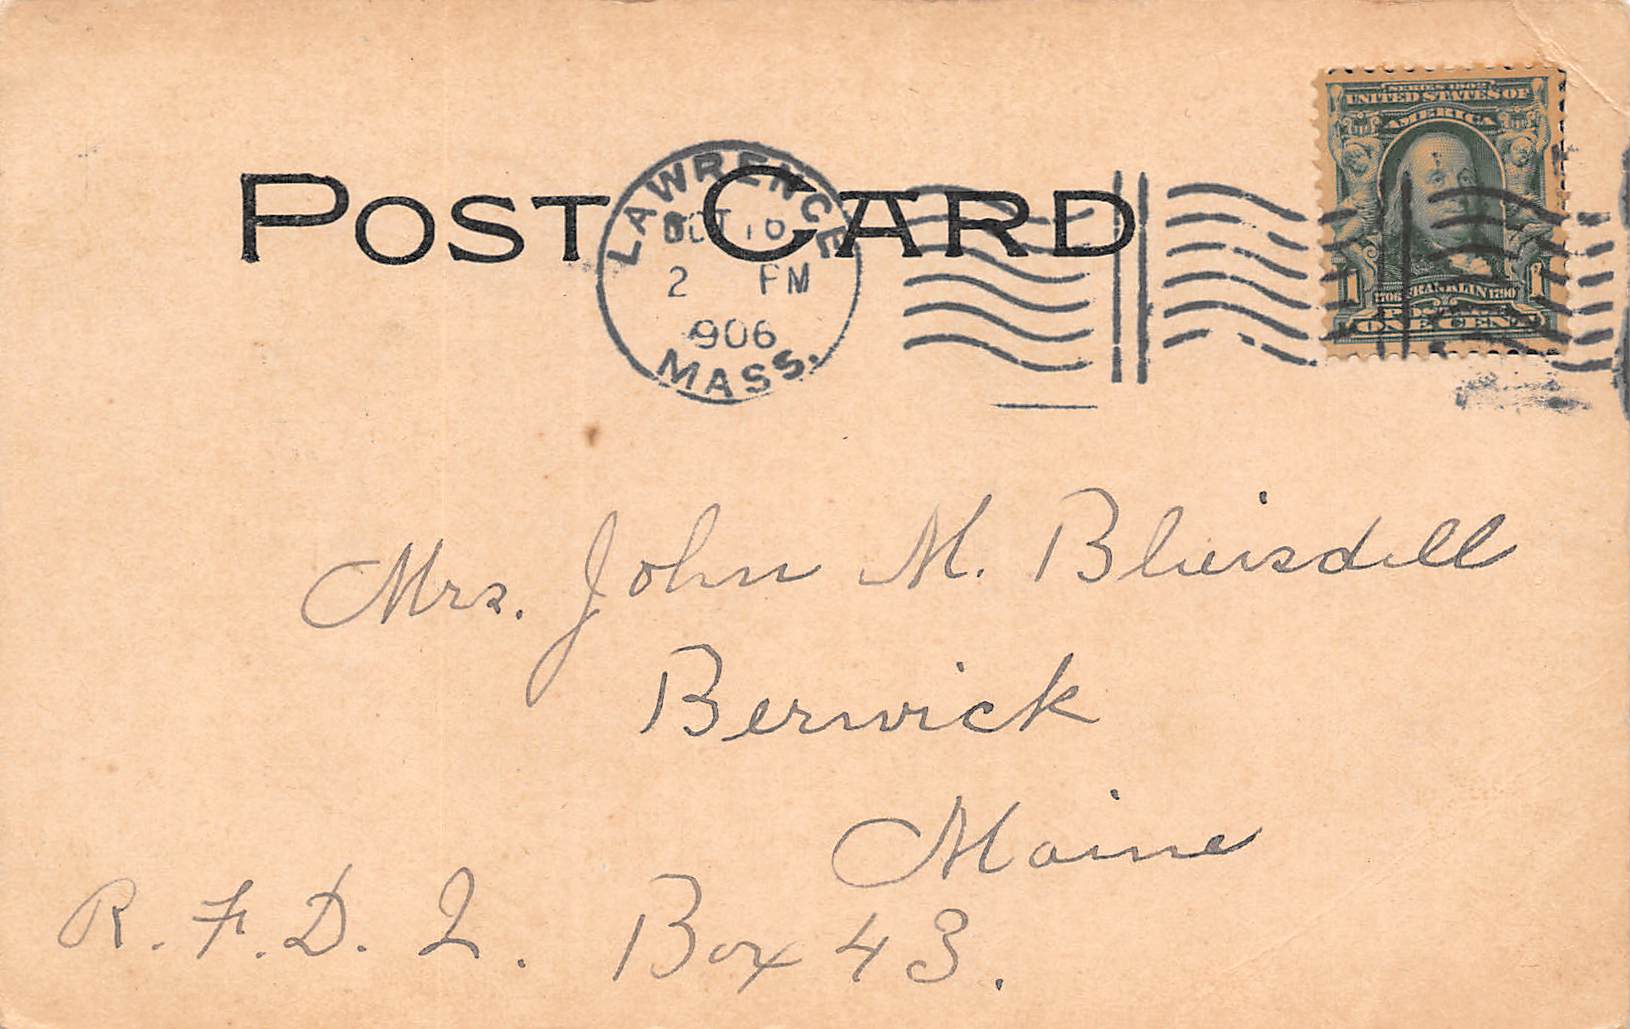 POST CARD
LAWRENCE
OCT 16
2 PM
906
MASS.
SERIES 1902
UNITED STATES OF
AMERICA
1 1706 FRANKLIN 1790 1
POSTAGE
ONE CENT
Mrs. John M. Blaisdell
Berwick
Maine
R. F. D. 2. Box 43.